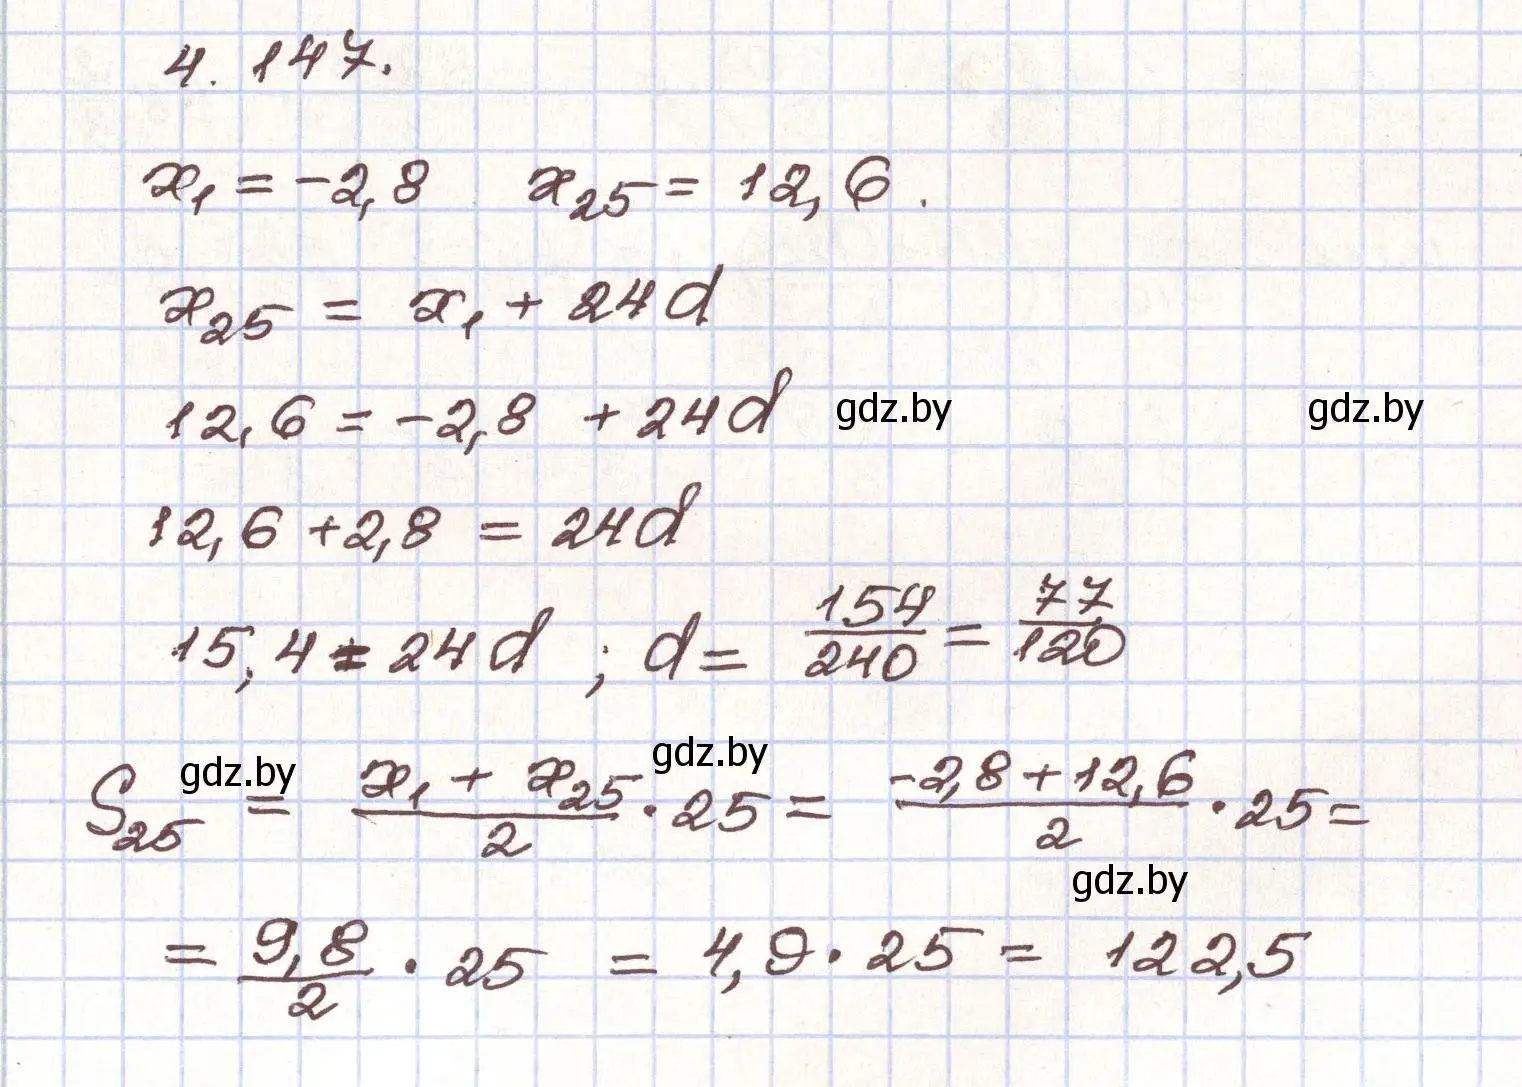 4.147.
x₁ = -2,8 x₂₅ = 12,6.
x₂₅ = x₁ + 24d
12,6 = -2,8 + 24d gdz.by gdz.by
12,6 + 2,8 = 24d
15,4 = 24d ; d = 154/240 = 77/120
gdz.by gdz.by
S₂₅ = (x₁ + x₂₅)/2 · 25 = (-2,8 + 12,6)/2 · 25 =
gdz.by
= 9,8/2 · 25 = 4,9 · 25 = 122,5